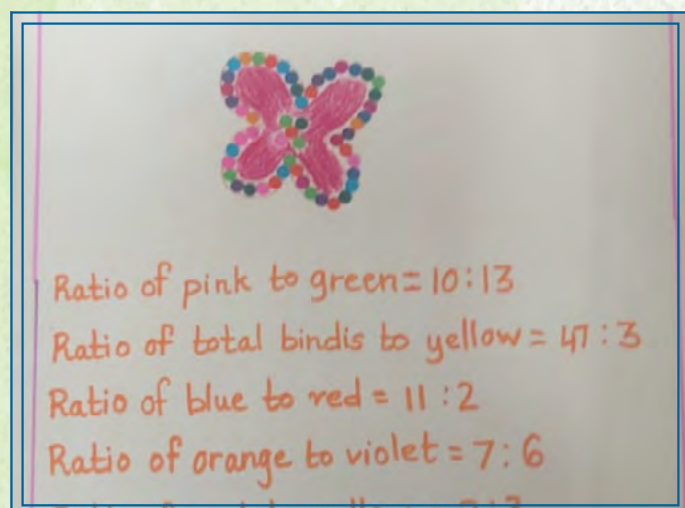 Ratio of pink to green = 10:13
Ratio of total bindis to yellow = 47 : 3
Ratio of blue to red = 11 : 2
Ratio of orange to violet = 7 : 6